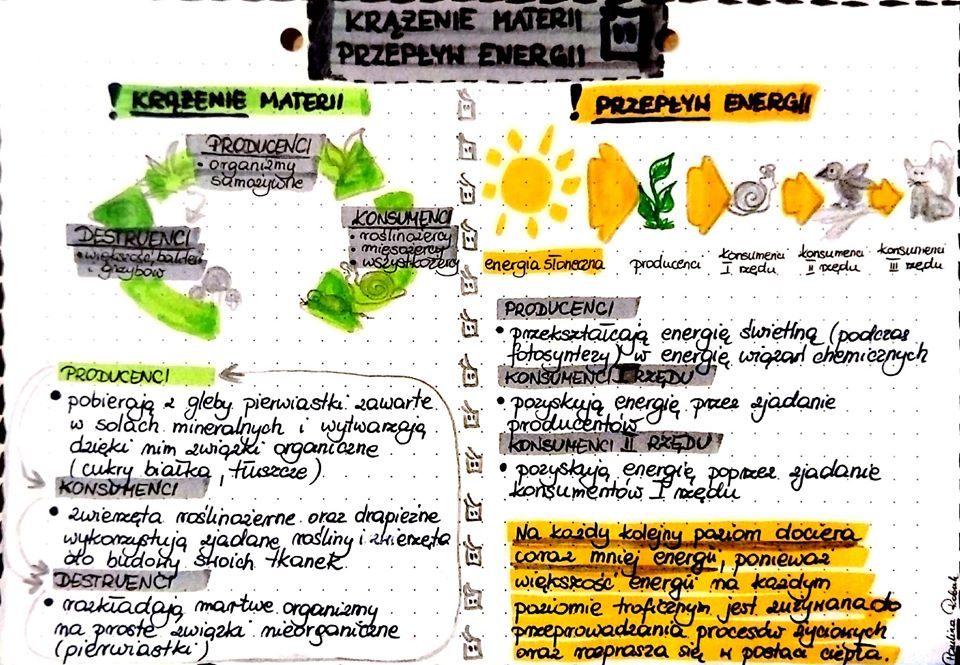 KRĄŻENIE MATERII
PRZEPŁYW ENERGII
! KRĄŻENIE MATERII
PRODUCENCI
• organizmy
samożywne
KONSUMENCI
• roślinożercy
• mięsożercy
• wszystkożercy
DESTRUENCI
• większość bakterii
i grzybów
PRODUCENCI
• pobierają z gleby pierwiastki zawarte
w solach mineralnych i wytwarzają
dzięki nim związki organiczne
(cukry białka, tłuszcze)
KONSUMENCI
• zwierzęta roślinożerne oraz drapieżne
wykorzystują zjadane rośliny i zwierzęta
do budowy swoich tkanek
DESTRUENCI
• rozkładają martwe organizmy
na proste związki nieorganiczne
(pierwiastki)
! PRZEPŁYW ENERGII
energia słoneczna
producenci
konsumenci
I rzędu
konsumenci
II rzędu
konsumenci
III rzędu
PRODUCENCI
• przekształcają energię świetlną (podczas
fotosyntezy) w energię wiązań chemicznych
KONSUMENCI I RZĘDU
• pozyskują energię przez zjadanie
producentów
KONSUMENCI II RZĘDU
• pozyskują energię poprzez zjadanie
konsumentów I rzędu
Na każdy kolejny poziom dociera
coraz mniej energii, ponieważ
większość energii na każdym
poziomie troficznym jest zużywana do
przeprowadzania procesów życiowych
oraz rozprasza się w postaci ciepła.